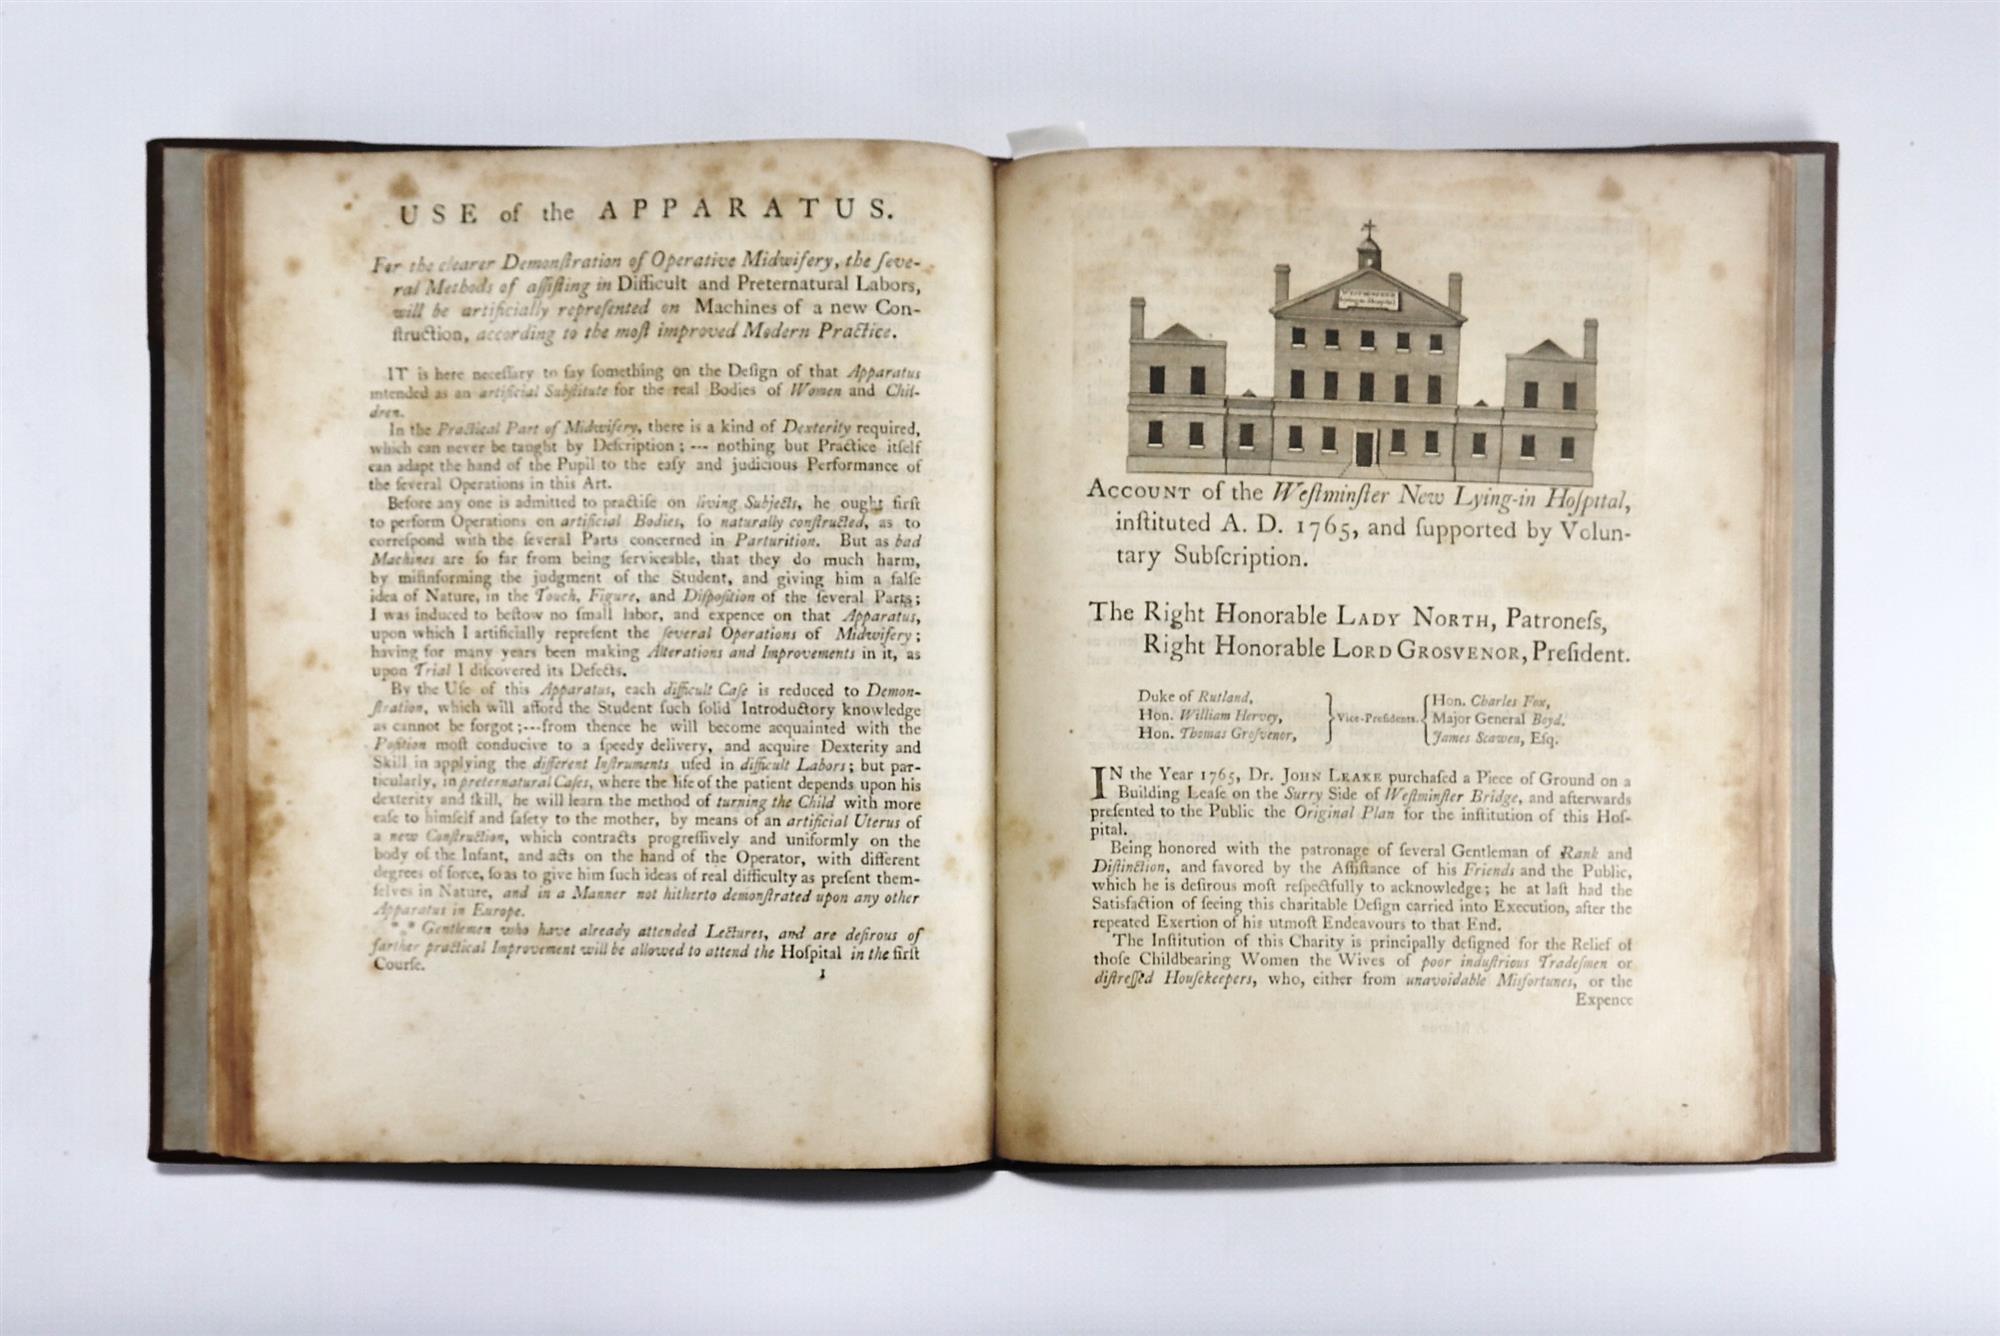 USE of the APPARATUS.
For the clearer Demonſtration of Operative Midwifery, the ſeve-
ral Methods of aſſiſting in Difficult and Preternatural Labors,
will be artificially repreſented on Machines of a new Con-
ſtruction, according to the moſt improved Modern Practice.
IT is here neceſſary to ſay ſomething on the Deſign of that Apparatus
intended as an artificial Subſtitute for the real Bodies of Women and Chil-
dren.
In the Practical Part of Midwifery, there is a kind of Dexterity required,
which can never be taught by Deſcription; --- nothing but Practice itſelf
can adapt the hand of the Pupil to the eaſy and judicious Performance of
the ſeveral Operations in this Art.
Before any one is admitted to practiſe on living Subjects, he ought firſt
to perform Operations on artificial Bodies, ſo naturally conſtructed, as to
correſpond with the ſeveral Parts concerned in Parturition. But as bad
Machines are ſo far from being ſerviceable, that they do much harm,
by miſinforming the judgment of the Student, and giving him a falſe
idea of Nature, in the Touch, Figure, and Diſpoſition of the ſeveral Parts;
I was induced to beſtow no ſmall labor, and expence on that Apparatus,
upon which I artificially repreſent the ſeveral Operations of Midwifery;
having for many years been making Alterations and Improvements in it, as
upon Trial I diſcovered its Defects.
By the Uſe of this Apparatus, each difficult Caſe is reduced to Demon-
ſtration, which will afford the Student ſuch ſolid Introductory knowledge
as cannot be forgot;---from thence he will become acquainted with the
Poſition moſt conducive to a ſpeedy delivery, and acquire Dexterity and
Skill in applying the different Inſtruments uſed in difficult Labors; but par-
ticularly, in preternatural Caſes, where the life of the patient depends upon his
dexterity and ſkill, he will learn the method of turning the Child with more
eaſe to himſelf and ſafety to the mother, by means of an artificial Uterus of
a new Conſtruction, which contracts progreſſively and uniformly on the
body of the Infant, and acts on the hand of the Operator, with different
degrees of force, ſo as to give him ſuch ideas of real difficulty as preſent them-
ſelves in Nature, and in a Manner not hitherto demonſtrated upon any other
Apparatus in Europe.
*** Gentlemen who have already attended Lectures, and are deſirous of
farther practical Improvement will be allowed to attend the Hoſpital in the firſt
Courſe.
I
WESTMINSTER
Lying-in Hospital
ACCOUNT of the Weſtminſter New Lying-in Hoſpital,
inſtituted A. D. 1765, and ſupported by Volun-
tary Subſcription.
The Right Honorable LADY NORTH, Patroneſs,
Right Honorable LORD GROSVENOR, Preſident.
Duke of Rutland,
Hon. William Hervey,
Hon. Thomas Groſvenor,
Vice-Preſidents.
Hon. Charles Fox,
Major General Boyd,
James Scawen, Eſq.
IN the Year 1765, Dr. JOHN LEAKE purchaſed a Piece of Ground on a
Building Leaſe on the Surry Side of Weſtminſter Bridge, and afterwards
preſented to the Public the Original Plan for the inſtitution of this Hoſ-
pital.
Being honored with the patronage of ſeveral Gentleman of Rank and
Diſtinction, and favored by the Aſſiſtance of his Friends and the Public,
which he is deſirous moſt reſpectfully to acknowledge; he at laſt had the
Satisfaction of ſeeing this charitable Deſign carried into Execution, after the
repeated Exertion of his utmoſt Endeavours to that End.
The Inſtitution of this Charity is principally deſigned for the Relief of
thoſe Childbearing Women the Wives of poor induſtrious Tradeſmen or
diſtreſſed Houſekeepers, who, either from unavoidable Misfortunes, or the
Expence